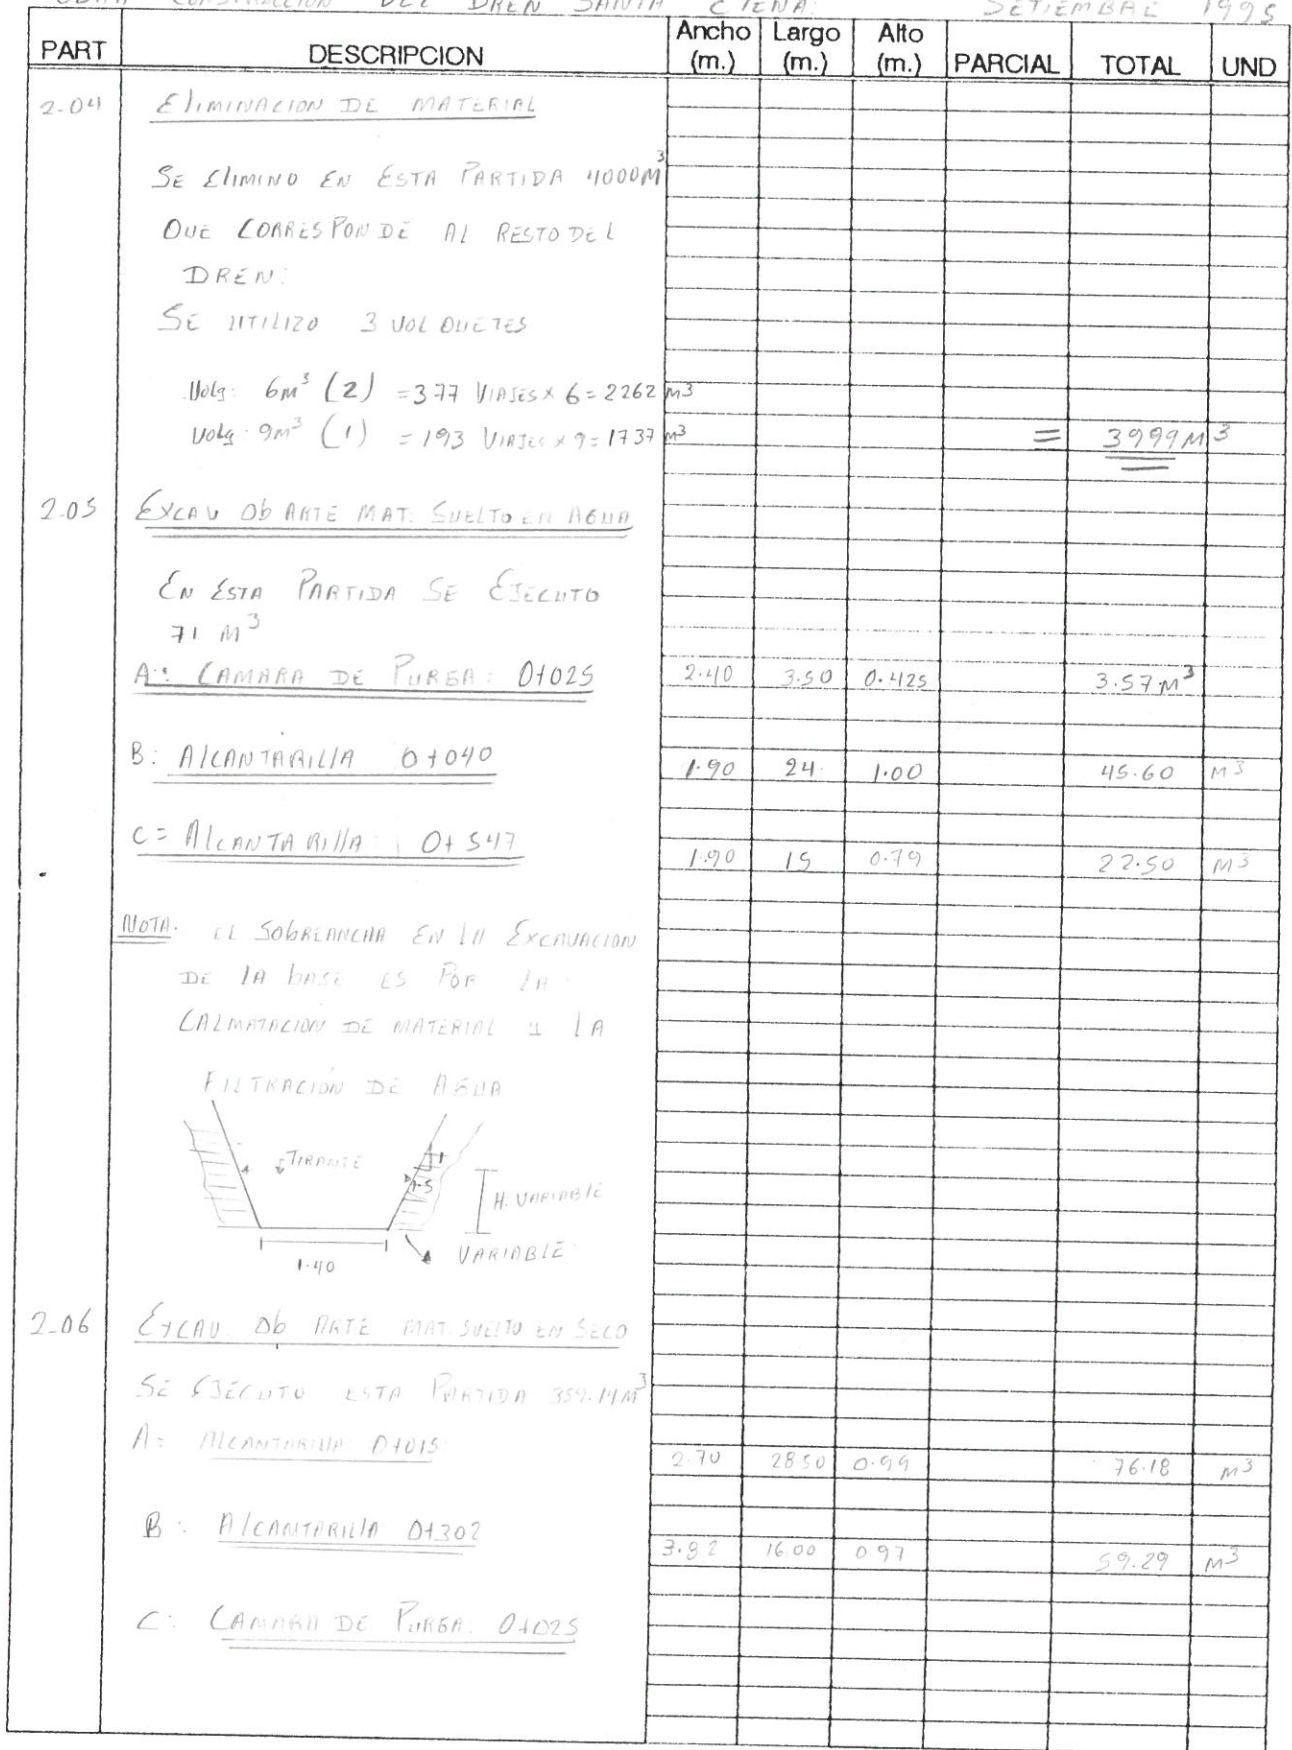 OBRA CONSTRUCCION DEL DREN SANTA SETIEMBRE 1995
PART DESCRIPCION Ancho (m.) Largo (m.) Alto (m.) PARCIAL TOTAL UND
2-04 EliMINACION DE MATERIAL
SE EliMINO EN ESTA PARTIDA 4000M³
QUE CORRESPONDE Al RESTO DEL
DREN:
SE UTILIZO 3 VOLQUETES
Volq: 6m³ (2) = 377 VIAJES x 6 = 2262 m³
Volq. 9m³ (1) = 193 VIAJES x 9 = 1737 m³ = 3999M³
2-05 EXCAV Ob ARTE MAT. SUELTO EN AGUA
EN ESTA PARTIDA SE EJECUTO
71 M³
A: CAMARA DE PURGA: 0+025 2.40 3.50 0.425 3.57 M³
B: AlCANTARILlA 0+040 1.90 24. 1.00 45.60 M³
C = AlCANTARIllA: 0+547 1.90 15 0.79 22.50 M³
NOTA. EL SOBREANCHA EN lA EXCAVACION
DE lA bASE ES POR lA
CALMATACION DE MATERIAL Y LA
FILTRACION DE AGUA
TIRANTE
1
1.5
H. VARIABlE
1.40 VARIABLE
2-06 EXCAV. Ob ARTE MAT. SUELTO EN SECO
SE EJECUTO ESTA PARTIDA 359.14M³
A = AlCANTARIllA 0+015 2.70 28.50 0.99 76.18 m³
B: AlCANTARIllA 0+302 3.82 16.00 0.97 59.29 m³
C: CAMARA DE PURGA. 0+025